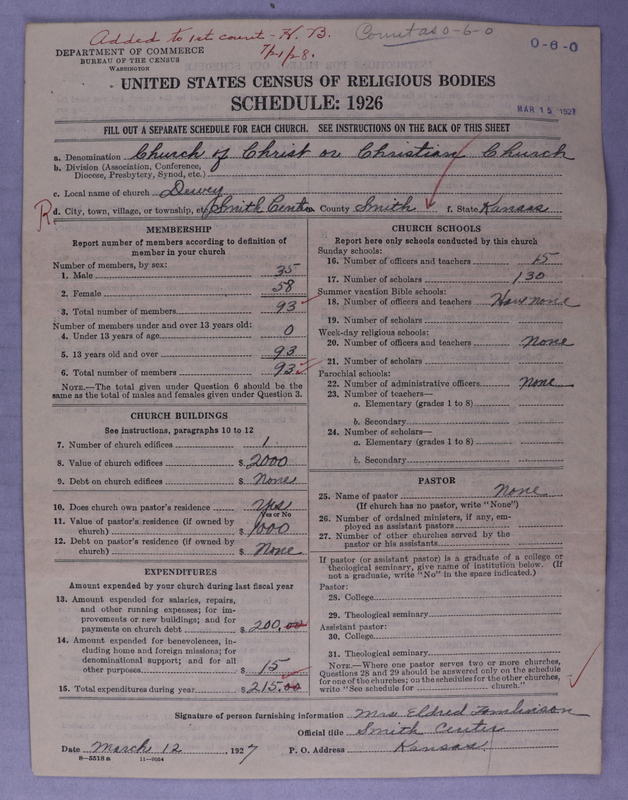 Added to 1st count - H. B.
7/21/28.
Count as 0-6-0
0-6-0
DEPARTMENT OF COMMERCE
BUREAU OF THE CENSUS
WASHINGTON
UNITED STATES CENSUS OF RELIGIOUS BODIES
SCHEDULE: 1926
MAR 15 1927
FILL OUT A SEPARATE SCHEDULE FOR EACH CHURCH. SEE INSTRUCTIONS ON THE BACK OF THIS SHEET
a. Denomination Church of Christ or Christian Church
b. Division (Association, Conference, Diocese, Presbytery, Synod, etc.)
c. Local name of church Dewey
R d. City, town, village, or township, etc. Smith Center County Smith f. State Kansas
MEMBERSHIP
Report number of members according to definition of member in your church
Number of members, by sex:
1. Male 35
2. Female 58
3. Total number of members 93
Number of members under and over 13 years old:
4. Under 13 years of age 0
5. 13 years old and over 93
6. Total number of members 93
NOTE.—The total given under Question 6 should be the same as the total of males and females given under Question 3.
CHURCH BUILDINGS
See instructions, paragraphs 10 to 12
7. Number of church edifices 1
8. Value of church edifices $ 2000
9. Debt on church edifices $ None
10. Does church own pastor's residence Yes
Yes or No
11. Value of pastor's residence (if owned by church) $ 1000
12. Debt on pastor's residence (if owned by church) $ None
EXPENDITURES
Amount expended by your church during last fiscal year
13. Amount expended for salaries, repairs, and other running expenses; for improvements or new buildings; and for payments on church debt $ 200.00
14. Amount expended for benevolences, including home and foreign missions; for denominational support; and for all other purposes $ 15
15. Total expenditures during year $ 215.00
CHURCH SCHOOLS
Report here only schools conducted by this church
Sunday schools:
16. Number of officers and teachers 15
17. Number of scholars 130
Summer vacation Bible schools:
18. Number of officers and teachers Have none
19. Number of scholars
Week-day religious schools:
20. Number of officers and teachers None
21. Number of scholars
Parochial schools:
22. Number of administrative officers None
23. Number of teachers—
a. Elementary (grades 1 to 8)
b. Secondary
24. Number of scholars—
a. Elementary (grades 1 to 8)
b. Secondary
PASTOR
25. Name of pastor None
(If church has no pastor, write "None")
26. Number of ordained ministers, if any, employed as assistant pastors
27. Number of other churches served by the pastor or his assistants
If pastor (or assistant pastor) is a graduate of a college or theological seminary, give name of institution below. (If not a graduate, write "No" in the space indicated.)
Pastor:
28. College
29. Theological seminary
Assistant pastor:
30. College
31. Theological seminary
NOTE.—Where one pastor serves two or more churches, Questions 28 and 29 should be answered only on the schedule for one of the churches; on the schedules for the other churches, write "See schedule for church."
Signature of person furnishing information Mrs Eldred Tomlinson
Official title Smith Center
Date March 12 1927 P. O. Address Kansas.
8—5518a 11—9054